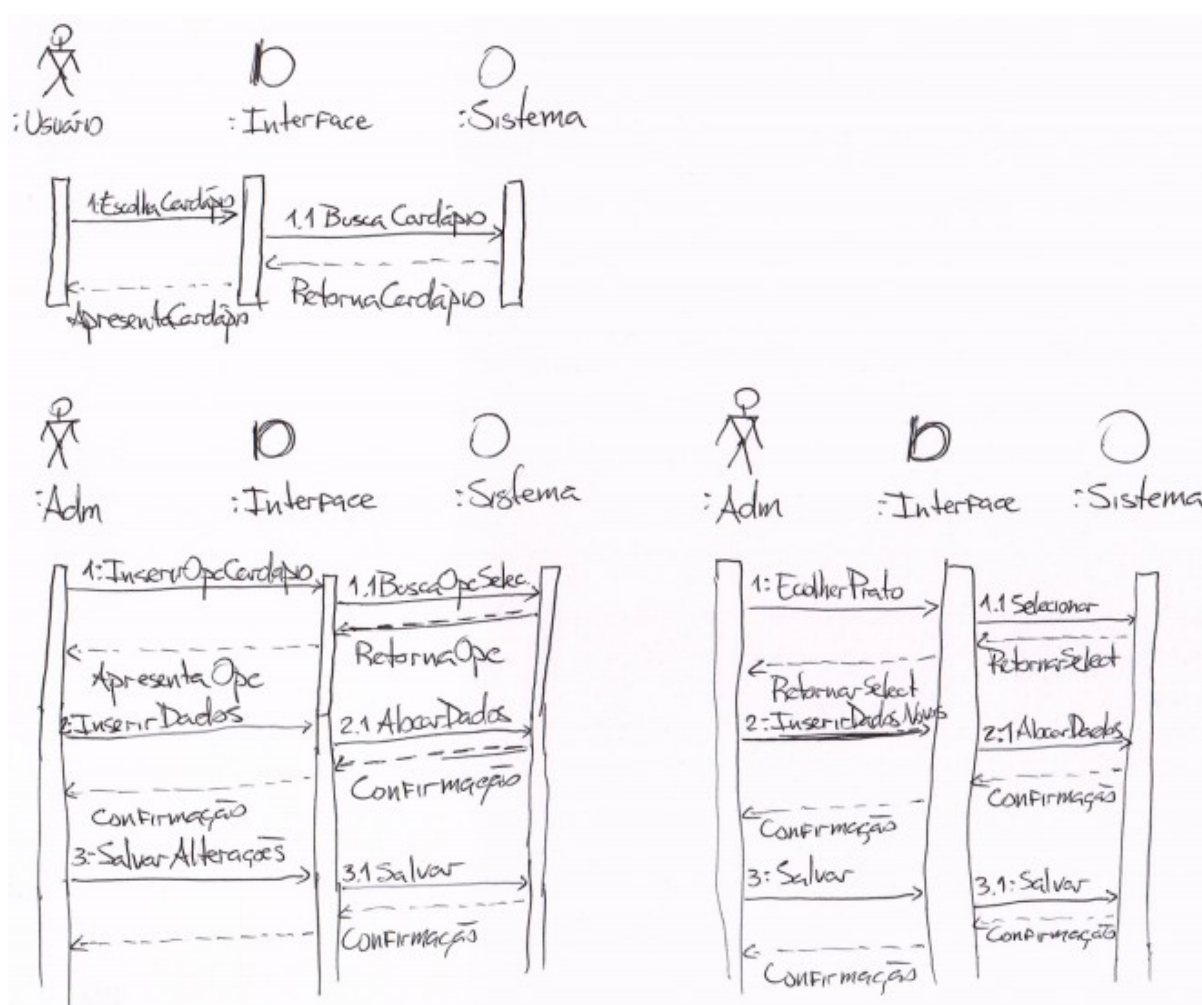 :Usuário
:Interface
:Sistema
1:EscolhaCardápio
1.1 Busca Cardápio
RetornaCardápio
ApresentaCardápio
:Adm
:Interface
:Sistema
1:InserirOpcCardápio
1.1BuscaOpcSelec.
RetornaOpc
Apresenta Opc
2:InserirDados
2.1 AlocarDados
Confirmação
Confirmação
3:SalvarAlterações
3.1 Salvar
Confirmação
:Adm
:Interface
:Sistema
1:EcolherPrato
1.1 Selecionar
RetornarSelect
RetornarSelect
2:InserirDadosNovos
2.1AlocarDados
Confirmação
Confirmação
3:Salvar
3.1:Salvar
Confirmação
Confirmação